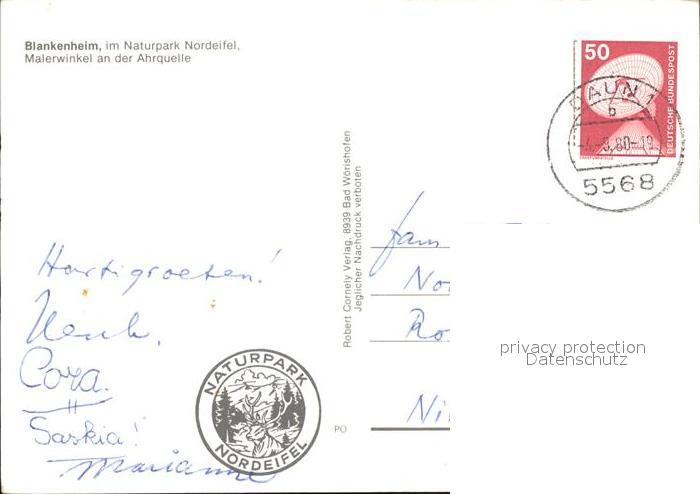 Blankenheim, im Naturpark Nordeifel,
Malerwinkel an der Ahrquelle
50
DEUTSCHE BUNDESPOST
DAUN 1
b
80-19
5568
Robert Cornely Verlag, 8939 Bad Wörishofen
Jeglicher Nachdruck verboten
Hartigroeten!
Henk,
Cora.
Saskia!
Marianne
NATURPARK
NORDEIFEL
PO
fam
No
Ro
Ni
privacy protection
Datenschutz